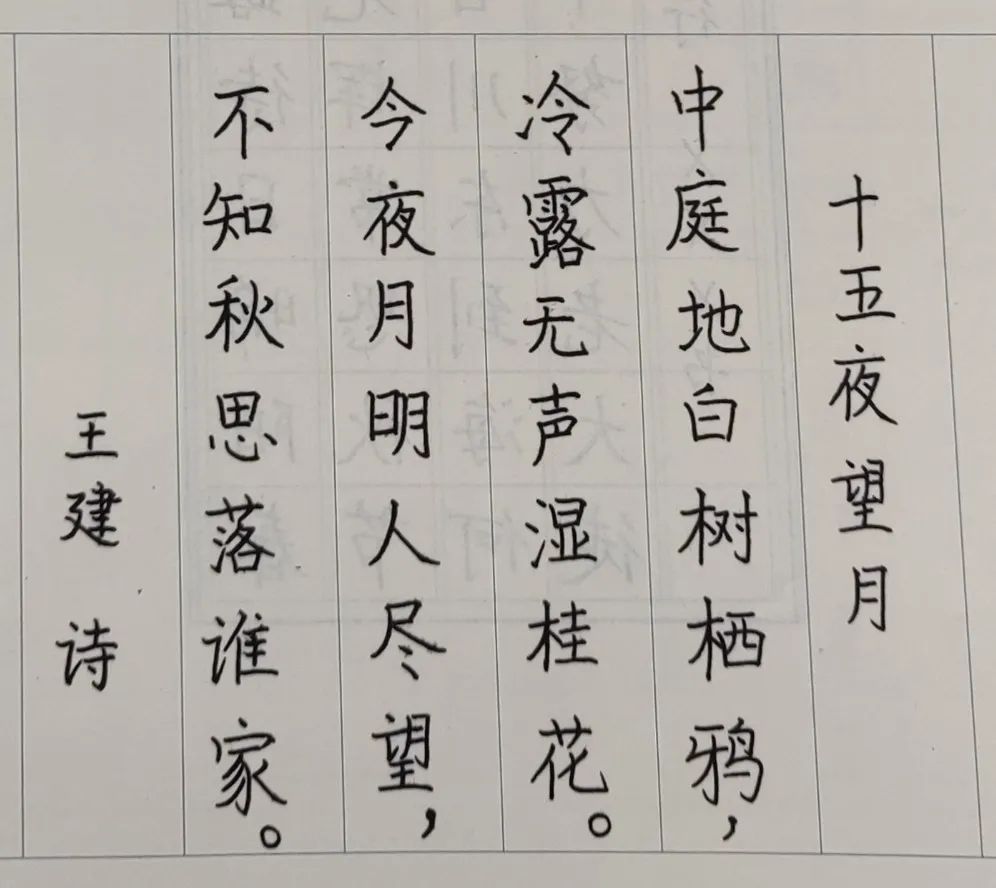 十五夜望月
中庭地白树栖鸦，
冷露无声湿桂花。
今夜月明人尽望，
不知秋思落谁家。
王建 诗